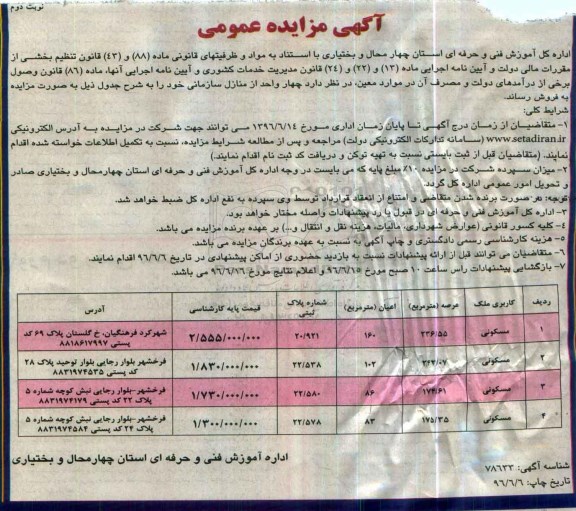 نوبت دوم
آگهی مزایده عمومی
اداره کل آموزش فنی و حرفه ای استان چهار محال و بختیاری با استناد به مواد و ظرفیتهای قانونی ماده (۸۸) و (۴۳) قانون تنظیم بخشی از
مقررات مالی دولت و آیین نامه اجرایی ماده (۱۳) و (۲۲) و (۲۴) قانون مدیریت خدمات کشوری و آیین نامه اجرایی آنها، ماده (۸۶) قانون وصول
برخی از درآمدهای دولت و مصرف آن در موارد معین، در نظر دارد چهار واحد از منازل سازمانی خود را به شرح جدول ذیل به صورت مزایده
به فروش رساند.
شرایط کلی:
۱- متقاضیان از زمان درج آگهی تا پایان زمان اداری مورخ ۱۳۹۶/۶/۱۴ می توانند جهت شرکت در مزایده به آدرس الکترونیکی
www.setadiran.ir (سامانه تدارکات الکترونیکی دولت) مراجعه و پس از مطالعه شرایط مزایده، نسبت به تکمیل اطلاعات خواسته شده اقدام
نمایند. (متقاضیان قبل از ثبت بایستی نسبت به تهیه توکن و دریافت کد ثبت نام اقدام نمایند.)
۲- میزان سپرده شرکت در مزایده ۱۰٪ مبلغ پایه که می بایست در وجه اداره کل آموزش فنی و حرفه ای استان چهارمحال و بختیاری صادر
و تحویل امور عمومی اداره کل گردد.
توجه: در صورت برنده شدن متقاضی و امتناع از انعقاد قرارداد توسط وی سپرده به نفع اداره کل ضبط خواهد شد.
۳- اداره کل آموزش فنی و حرفه ای در قبول یا رد پیشنهادات واصله مختار خواهد بود.
۴- کلیه کسور قانونی (عوارض شهرداری، مالیات، هزینه نقل و انتقال و...) بر عهده برنده مزایده می باشد.
۵- هزینه کارشناسی رسمی دادگستری و چاپ آگهی به نسبت به عهده برندگان مزایده می باشد.
۶- متقاضیان می توانند قبل از ارائه پیشنهادات نسبت به بازدید حضوری از اماکن پیشنهادی در تاریخ ۹۶/۶/۶ اقدام نمایند.
۷- بازگشایی پیشنهادات راس ساعت ۱۰ صبح مورخ ۹۶/۶/۱۵ و اعلام نتایج مورخ ۹۶/۶/۱۶ می باشد.
ردیف کاربری ملک عرصه (مترمربع) اعیان (مترمربع) شماره پلاک ثبتی قیمت پایه کارشناسی آدرس
۱ مسکونی ۲۳۶/۵۵ ۱۶۰ ۲۰/۹۲۱ ۲/۵۵۵/۰۰۰/۰۰۰ شهرکرد فرهنگیان، خ گلستان پلاک ۶۹ کد
پستی ۸۸۱۸۶۱۷۹۹۷
۲ مسکونی ۲۶۴/۰۷ ۱۰۲ ۲۲/۵۳۸ ۱/۸۳۰/۰۰۰/۰۰۰ فرخشهر بلوار رجایی بلوار توحید پلاک ۲۸
کد پستی ۸۸۳۱۹۷۴۵۳۵
۳ مسکونی ۱۷۴/۶۱ ۸۶ ۲۲/۵۸۰ ۱/۷۳۰/۰۰۰/۰۰۰ فرخشهر-بلوار رجایی نبش کوچه شماره ۵
پلاک ۲۲ کد پستی ۸۸۳۱۹۷۴۱۷۹
۴ مسکونی ۱۷۵/۳۵ ۸۳ ۲۲/۵۷۸ ۱/۳۰۰/۰۰۰/۰۰۰ فرخشهر-بلوار رجایی نبش کوچه شماره ۵
پلاک ۲۴ کد پستی ۸۸۳۱۹۷۴۵۸۴
شناسه آگهی: ۷۸۶۳۳
تاریخ چاپ: ۹۶/۶/۶
اداره آموزش فنی و حرفه ای استان چهارمحال و بختیاری